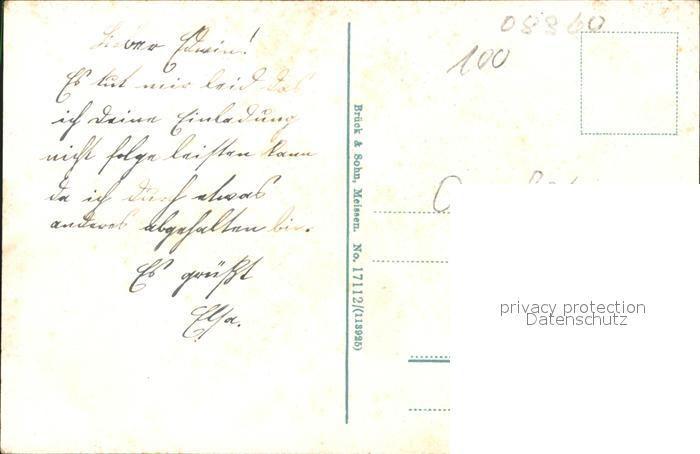 Lieber Edwin!
Es tut mir leid das
ich deine Einladung
nicht folge leisten kann
da ich durch etwas
anderes abgehalten bin.
Es grüßt
Elsa.
Brück & Sohn, Meissen. No. 17112/(113925)
08360
100
privacy protection
Datenschutz